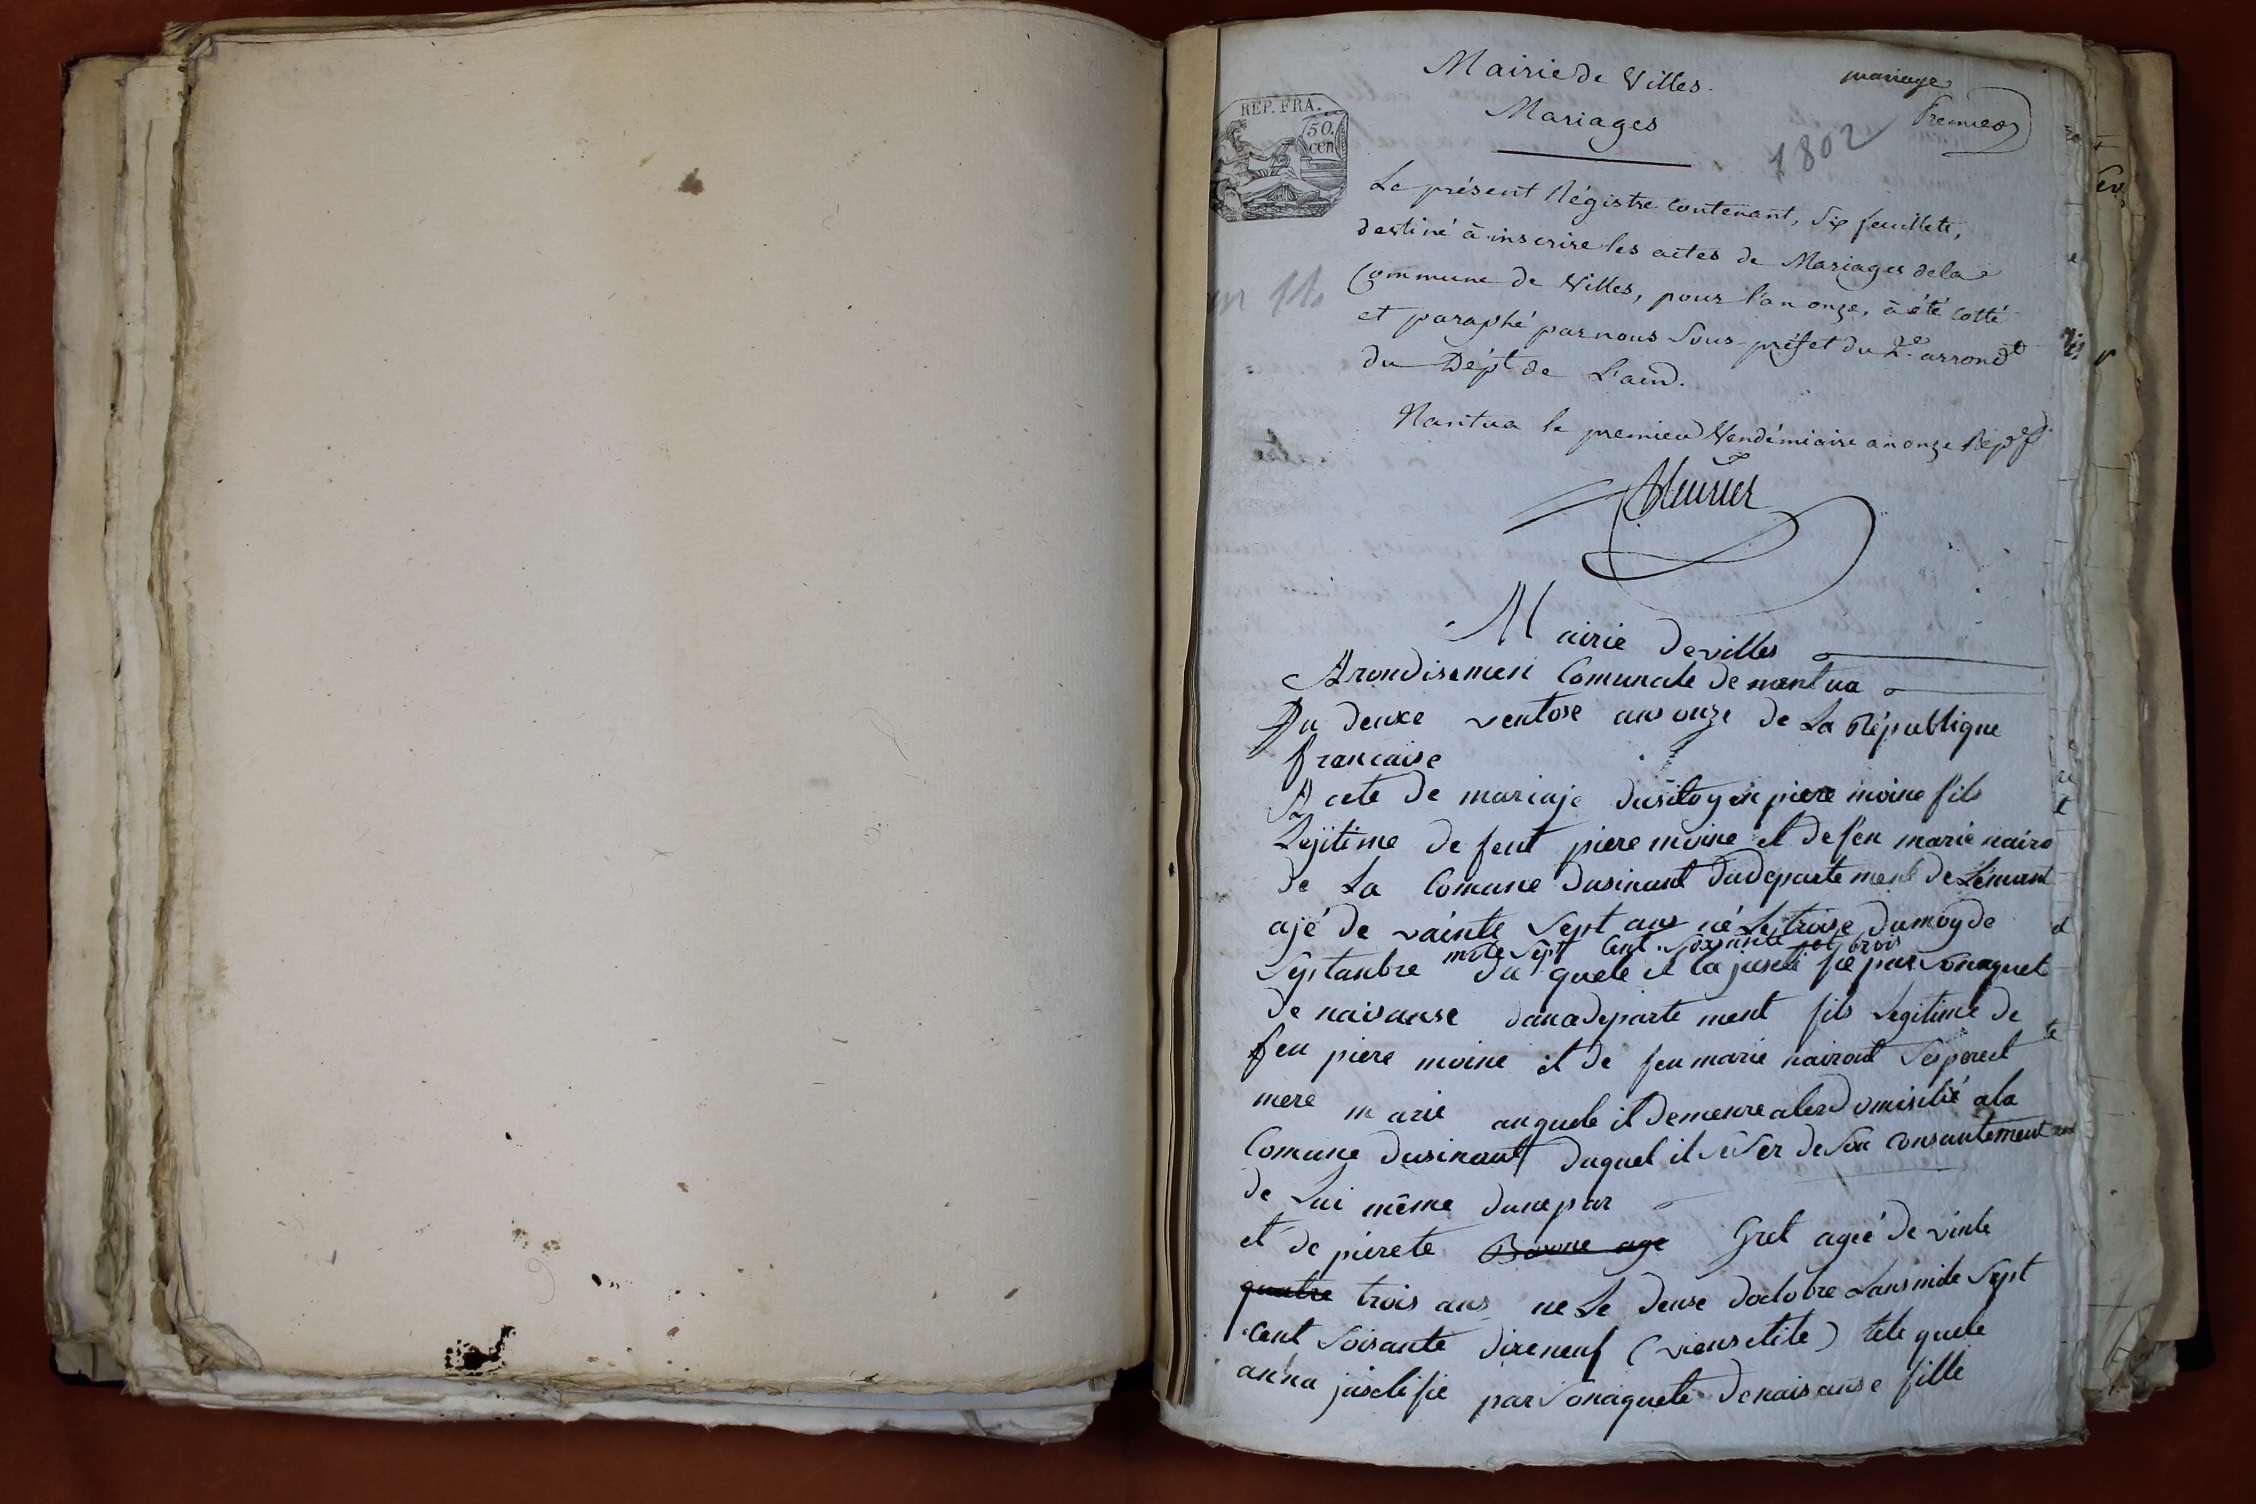 Mairie de Villes.
mariage
premier
Mariages
1802
REP. FRA.
50.
cen
Le présent Régistre contenant, six feuillets,
destiné à inscrire les actes de Mariages dela
Commune de Villes, pour l'an onze, à été cotté
et paraphé par nous Sous-préfet du 2.e arrond.t
du Dép.t de L'ain.
Nantua le premier Vendémiaire an onze
Mairie devilles
Arondisemen Comunale de nantua
Du deuxe ventose ans onze de La République
francaise
Acte de mariaje dusitoyen piere moine fils
Lejitime de feut piere moine et de feu marie nairo
de La Comune dusinant dudepartement de Lémant
ajé de vainte Sept ans né Le troise dumoy de
mile Sept Cent Soixante trois
Septanbre du quele il la justi fié par Sonaquet
de naisanse danadeparte ment fils Legitime de
feu piere moine et de feu marie nairout Sespere et
mere marie auquele il demeure aler domisilié ala
Comune dusinant duquel il de Son consantement
de Lui même dune par
et de pierete Gret ageé de vinte
quatre trois ans ne Le deuse doctobre Lans mile Sept
Cent Soisante dixeneuf (vieus stile) tele quele
anna justifié par Sonaquete denaisanse fille